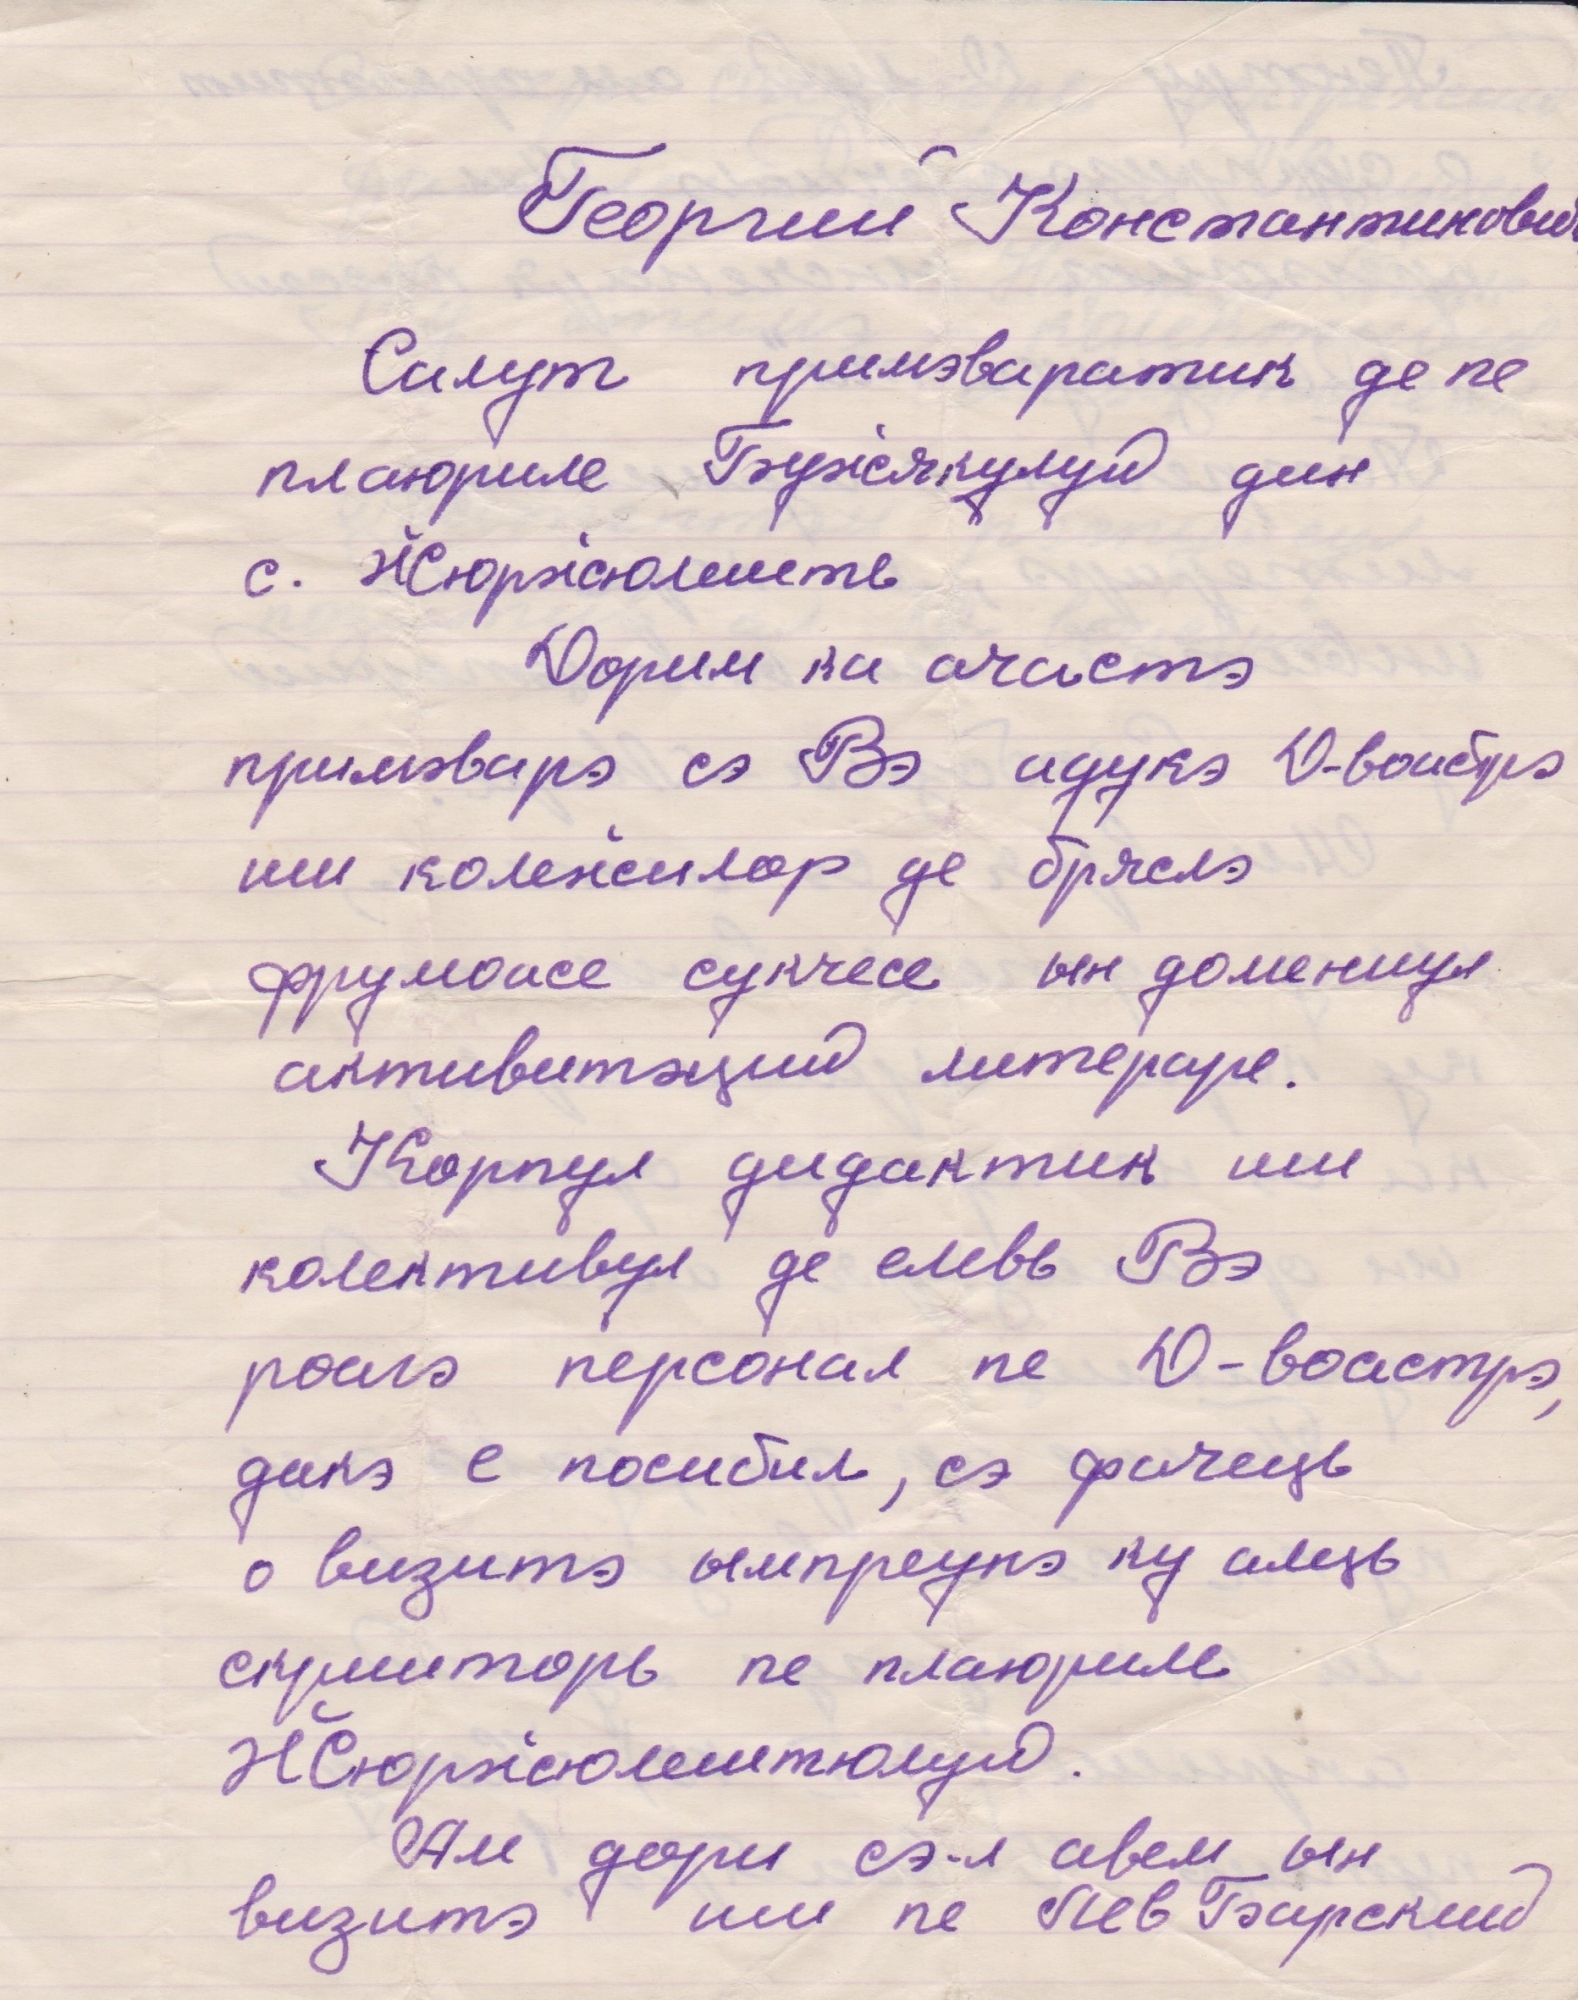 Георгий Константинович
Салут примэваратик де пе
плаюриле Буӂякулуй дин
с. Ӂюрӂюлешть
Дорим ка ачастэ
примэварэ сэ Вэ адукэ Д-воастрэ
ши колеӂилор де бряслэ
фрумоасе сукчесе ын доменицул
активитэций литераре.
Корпул дидактик ши
колективул де елевь Вэ
роагэ персонал пе Д-воастрэ,
дакэ е посибил, сэ фачець
о визитэ ымпреунэ ку алць
скрииторь пе плаюриле
Ӂюрӂюлештюлуй.
Ам дори сэ-л авем ын
визитэ ши пе Лев Барский